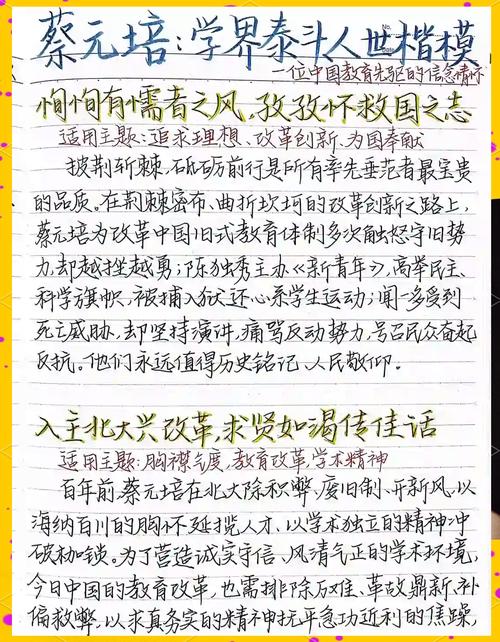 蔡元培:学界泰斗人世楷模
一位中国教育先驱的信念情怀
恂恂有儒者之风,孜孜怀救国之志
适用主题:追求理想、改革创新、为国奉献
披荆斩棘,砥砺前行是所有率先垂范者最宝贵
的品质。在荆棘密布、曲折坎坷的改革创新之路上,
蔡元培为改革中国旧式教育体制多次触怒守旧势
力,却越挫越勇;陈独秀主办《新青年》,高举民主、
科学旗帜,被捕入狱还心系学生运动;闻一多受到
死亡威胁,却坚持演讲,痛骂反动势力,号召民众奋起
反抗。他们永远值得历史铭记、人民敬仰。
入主北大兴改革,求贤如渴传佳话
适用主题:胸襟气度,教育改革,学术精神
百年前,蔡元培在北大除积弊、废旧制、开新风、以
海纳百川的胸怀延揽人才、以学术独立的精神冲
破枷锁。为了营造诚实守信、风清气正的学术环境,
今日中国的教育改革,也需排除万难、革故鼎新、补
偏救弊,以求真务实的精神抚平急功近利的焦躁,